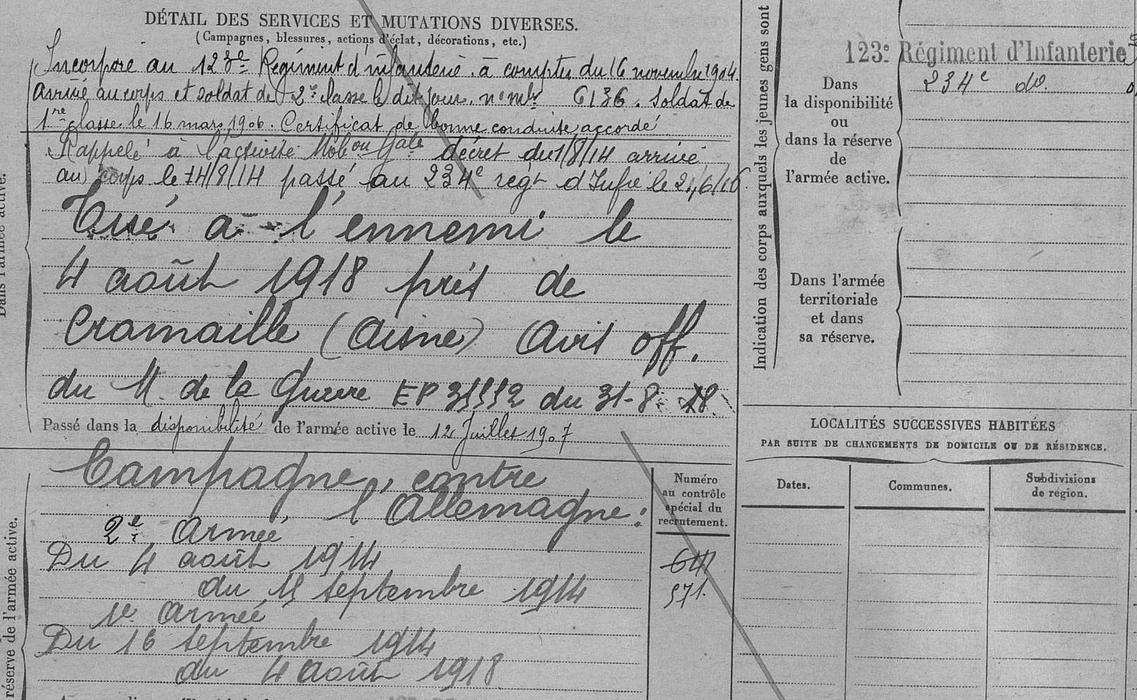 DÉTAIL DES SERVICES ET MUTATIONS DIVERSES.
(Campagnes, blessures, actions d'éclat, décorations, etc.)
Incorporé au 123e Régiment d'infanterie à compter du 16 novembre 1904.
Arrivé au corps et soldat de 2e classe le dit jour. n° mle 6136. Soldat de
1re classe le 16 mars 1906. Certificat de bonne conduite accordé
Rappelé à l'activité Mobon Gale décret du 1/8/14 arrivé
au corps le 14/8/14 passé au 234e regt d'Infie le 21/6/16.
Tué à l'ennemi le
4 août 1918 près de
Cramaille (Aisne) Avis off.
du M. de la Guerre EP du 31-8-18.
Passé dans la disponibilité de l'armée active le 12 Juillet 1907
Campagne contre
l'Allemagne:
2e Armée
Du 4 août 1914
du 11 septembre 1914
1e Armée
Du 16 septembre 1914
du 4 Août 1918
Dans l'armée active.
réserve de l'armée active.
Numéro
au contrôle
spécial du
recrutement.
641
571.
Indication des corps auxquels les jeunes gens sont
123e Régiment d'Infanterie
Dans
la disponibilité
ou
dans la réserve
de
l'armée active.
234e do.
Dans l'armée
territoriale
et dans
sa réserve.
LOCALITÉS SUCCESSIVES HABITÉES
PAR SUITE DE CHANGEMENTS DE DOMICILE OU DE RÉSIDENCE.
Dates.
Communes.
Subdivisions
de région.